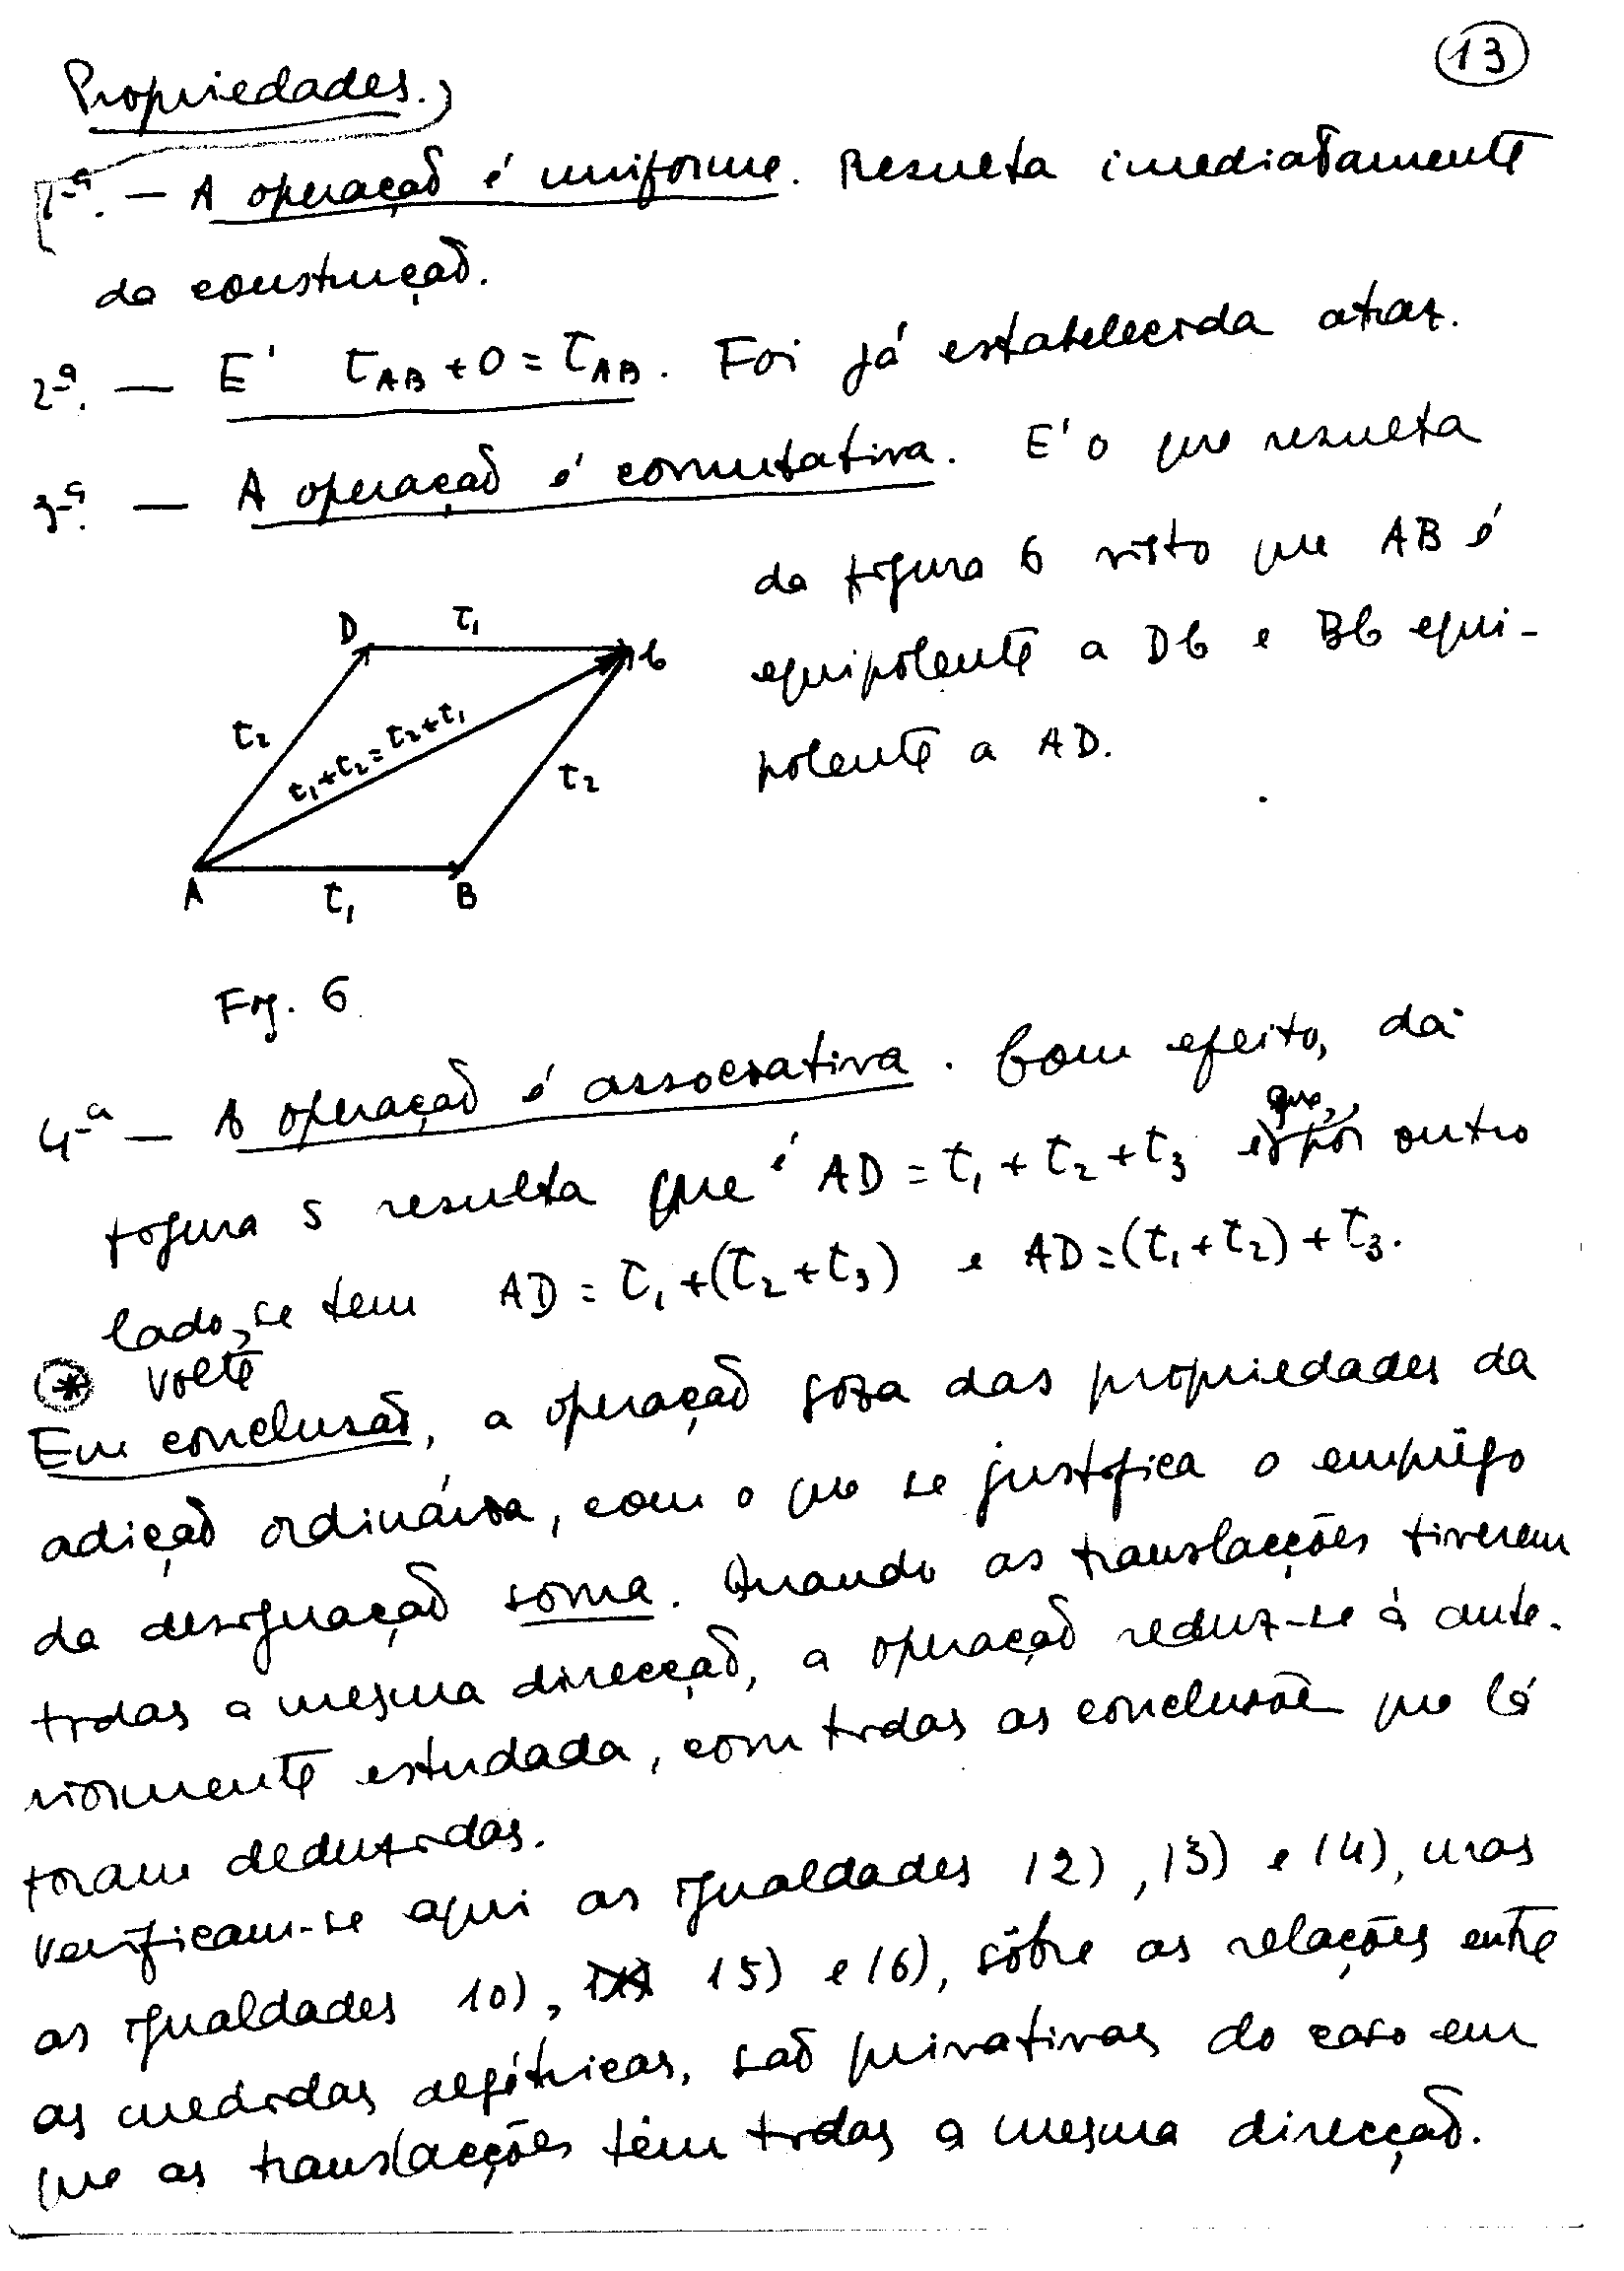 13
Propriedades.
1.ª — A operação é uniforme. Resulta imediatamente
da construção.
2.ª — E' τ_AB + 0 = τ_AB. Foi já estabelecida atraz.
3.ª — A operação é comutativa. E' o que resulta
da figura 6 visto que AB é
equipolente a DC e BC equi-
polente a AD.
D τ₁ C
τ₂ τ₁+τ₂=τ₂+τ₁ τ₂
A τ₁ B
Fig. 6
4.ª — A operação é associativa. Com efeito, da
figura 5 resulta que é AD = τ₁ + τ₂ + τ₃ e que, por outro
lado, se tem AD = τ₁ + (τ₂ + τ₃) e AD = (τ₁ + τ₂) + τ₃.
* Volte
Em conclusão, a operação goza das propriedades da
adição ordinária, com o que se justifica o emprêgo
da designação soma. Quando as translacções tiverem
todas a mesma direcção, a operação reduz-se à ante-
riormente estudada, com todas as conclusões que lá
foram deduzidas.
Verificam-se aqui as igualdades 12), 13) e 14), mas
as igualdades 10), 15) e 16), sôbre as relações entre
as medidas algébricas, são privativas do caso em
que as translacções têm todas a mesma direcção.